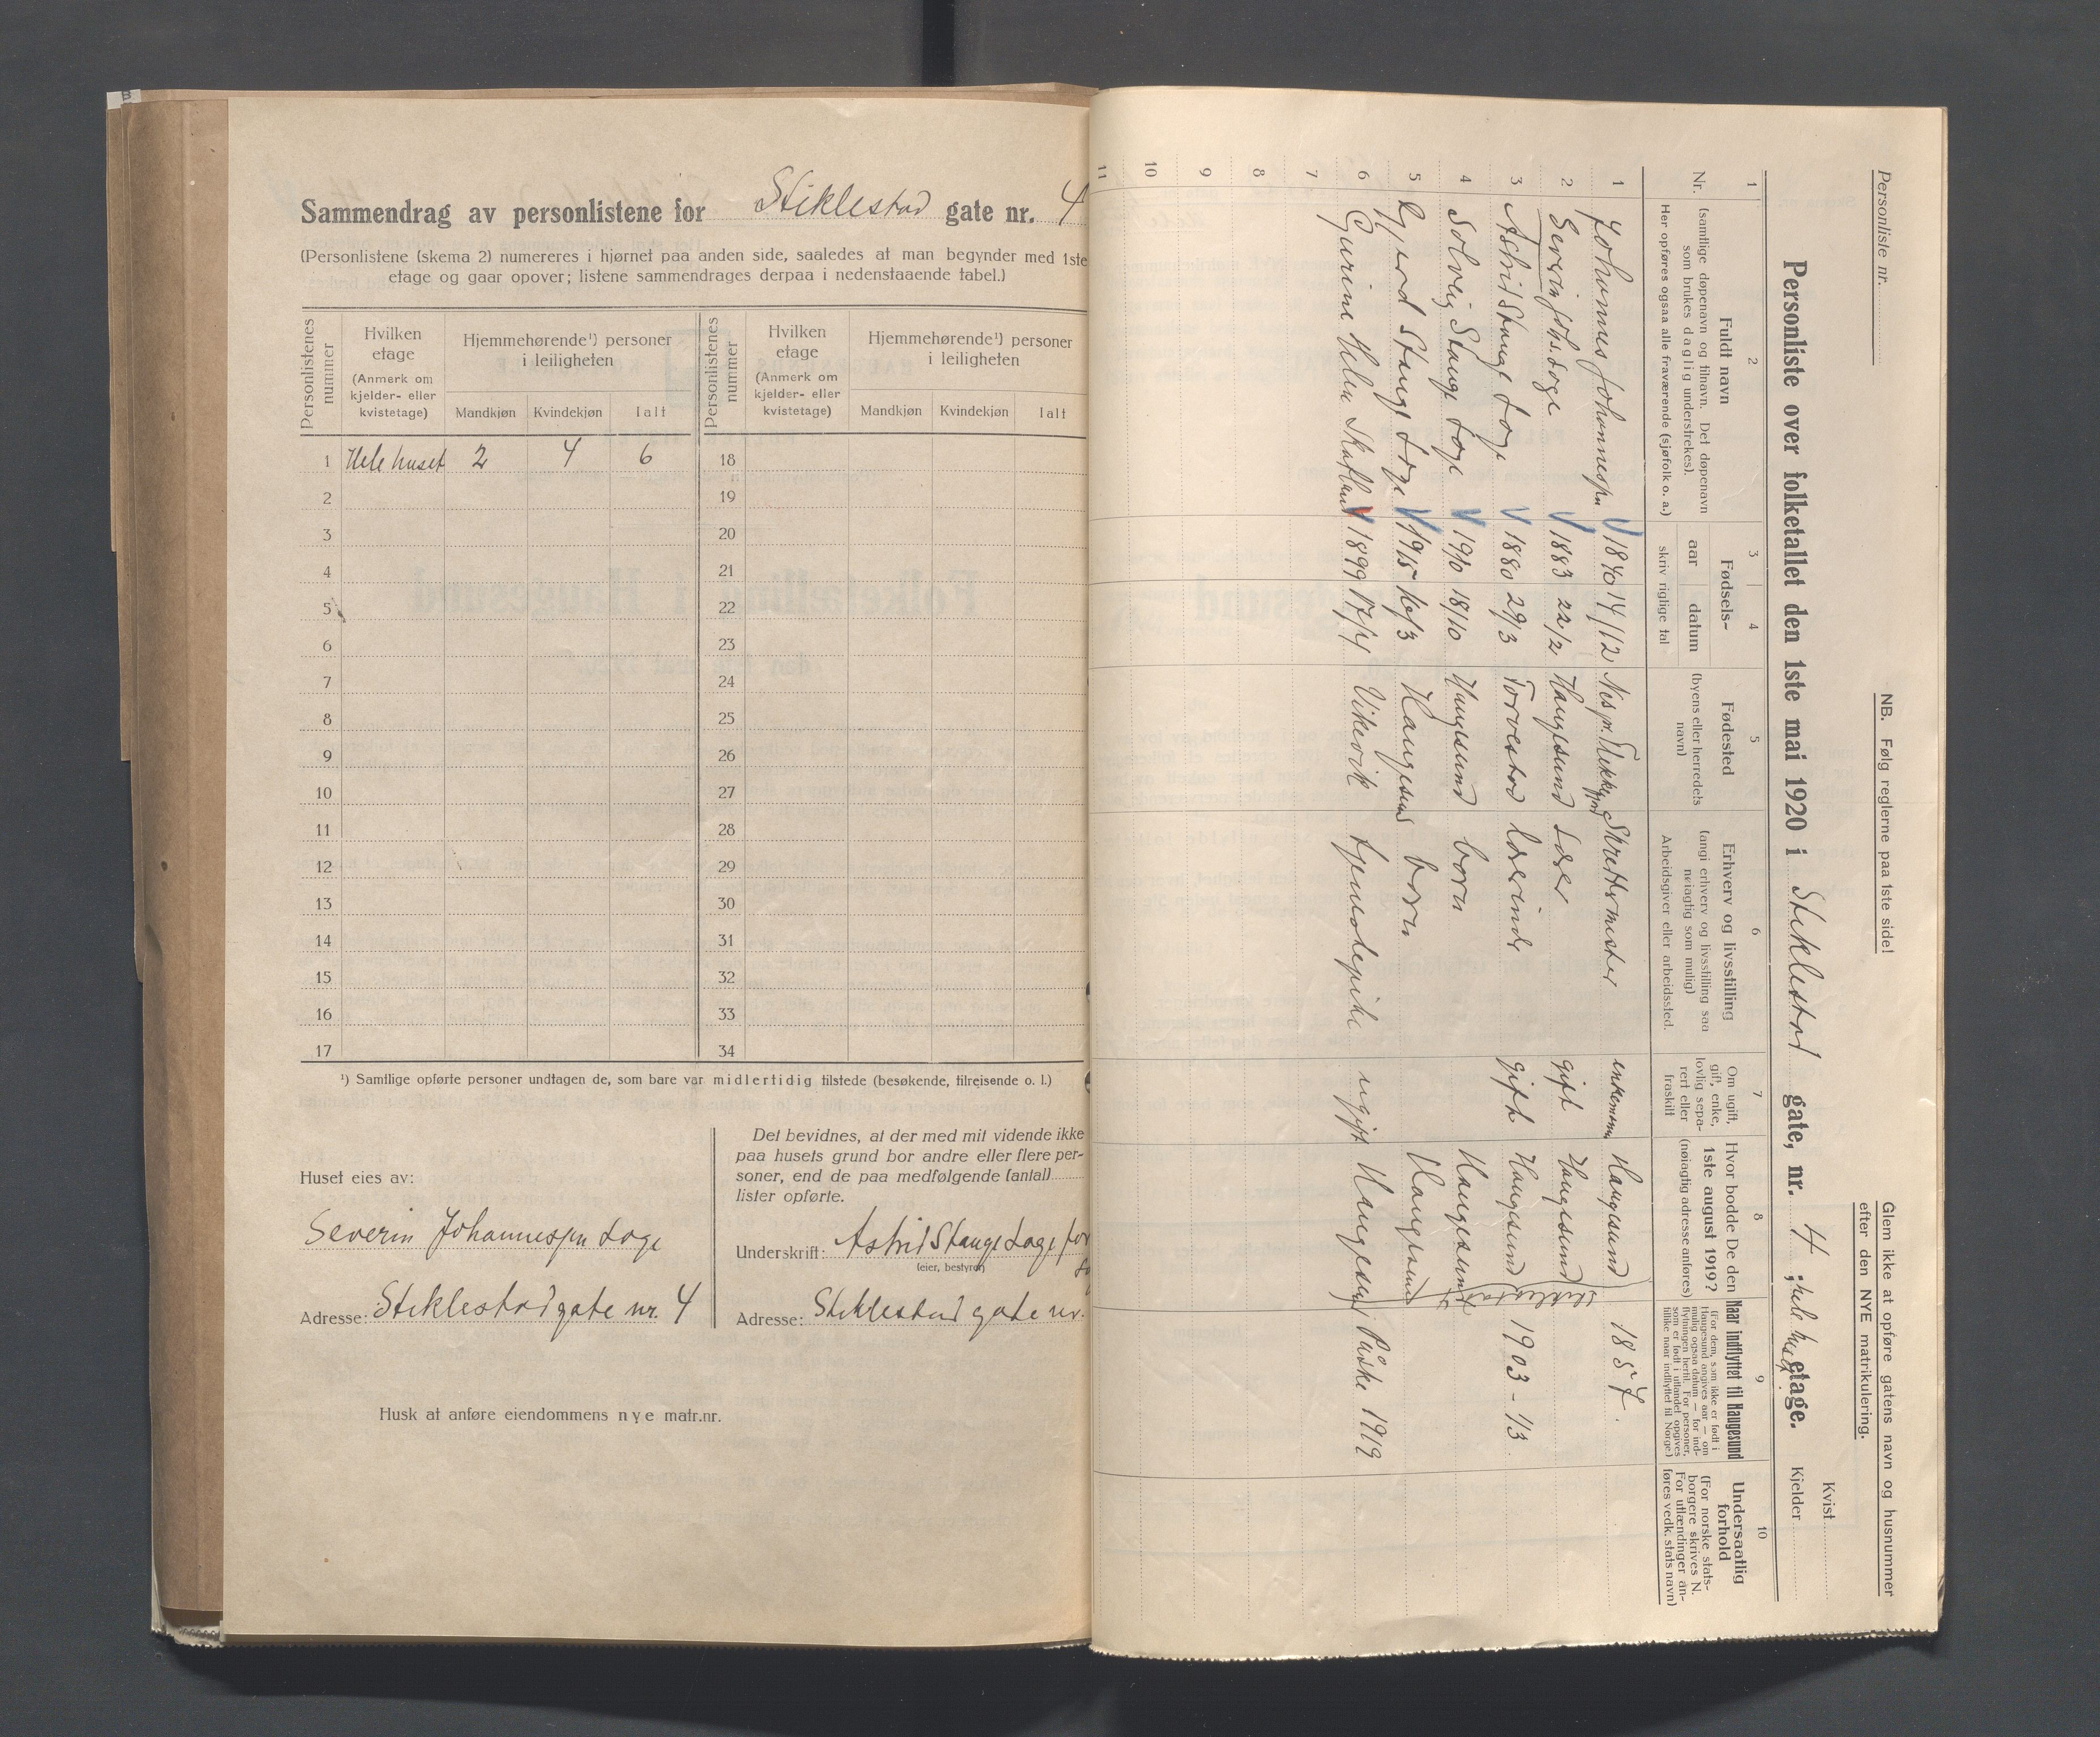 Sammendrag av personlistene for Stiklestad gate nr. 4
(Personlistene (skema 2) numereres i hjørnet paa anden side, saaledes at man begynder med 1ste
etage og gaar opover; listene sammendrages derpaa i nedenstaaende tabel.)
Personlistenes nummer
Hvilken etage (Anmerk om kjelder- eller kvistetage)
Hjemmehørende¹) personer i leiligheten
Mandkjøn Kvindekjøn Ialt
Personlistenes nummer
Hvilken etage (Anmerk om kjelder- eller kvistetage)
Hjemmehørende¹) personer i leiligheten
Mandkjøn Kvindekjøn Ialt
1 Hele huset 2 4 6 18
2 19
3 20
4 21
5 22
6 23
7 24
8 25
9 26
10 27
11 28
12 29
13 30
14 31
15 32
16 33
17 34
¹) Samtlige opførte personer undtagen de, som bare var midlertidig tilstede (besøkende, tilreisende o. l.)
Huset eies av:
Severin Johannesen Loge
Adresse: Stiklestadgate nr. 4
Det bevidnes, at der med mit vidende ikke
paa husets grund bor andre eller flere per-
soner, end de paa medfølgende (antal)
lister opførte.
Underskrift: Astrid Stange Loge for
(eier, bestyrer)
Adresse: Stiklestad gate nr.
Husk at anføre eiendommens nye matr.nr.
Personliste nr.
NB. Følg reglerne paa 1ste side!
Glem ikke at opføre gatens navn og husnummer
efter den NYE matrikulering.
Kvist
Personliste over folketallet den 1ste mai 1920 i Stiklestad gate, nr. 4 ; hele huset etage.
Kjelder
1 2 3 4 5 6 7 8 9 10
Nr.
Fuldt navn
(samtlige døpenavn og tilnavn. Det døpenavn
som brukes daglig understrekes).
Her opføres ogsaa alle fraværende (sjøfolk o. a.)
Fødsels-
aar datum
skriv rigtige tal
Fødested
(byens eller herredets
navn)
Erhverv og livsstilling
(angi erhverv og livsstilling saa
nøiagtig som mulig)
Arbeidsgiver eller arbeidssted.
Om ugift,
gift, enke,
lovlig sepa-
rert eller
fraskilt
Hvor bodde De den
1ste august 1919?
(nøiagtig adresse anføres)
Naar indflyttet til Haugesund
(For dem, som ikke er født i
Haugesund angives aar — om
mulig ogsaa datum — for ind-
flytningen hertil. For personer,
som er født i utlandet opgives
tillike naar indflyttet til Norge)
Undersaatlig
forhold
(For norske stats-
borgere skrives N.
For utlændinger an-
føres vedk. stats navn)
1 Johannes Johannesen 1840 14/12 Skreddermester enkemann Haugesund 1857.
2 Severin Johs. Loge 1883 22/2 Haugesund Lærer gift Haugesund
3 Astrid Stange Loge 1880 29/3 Torvestad lærerinde gift Haugesund 1903 - 1/3.
4 Solveig Stange Loge 1910 18/10 Haugesund barn Haugesund
5 Gjerd Stange Loge 1915 16/3 Haugesund barn Haugesund
6 Gurine Helene 1899 17/4 Vikevik tjenestepike ugift Haugesund Påske 1919
7
8
9
10
11